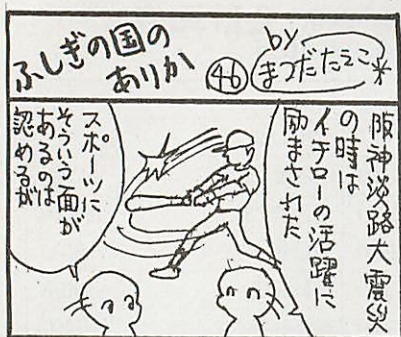 ふしぎの国の
ありか
46
by
まつだたえこ*
阪神淡路大震災
の時は
イチローの活躍に
励まされた
スポーツに
そういう面が
あるのは
認めるが